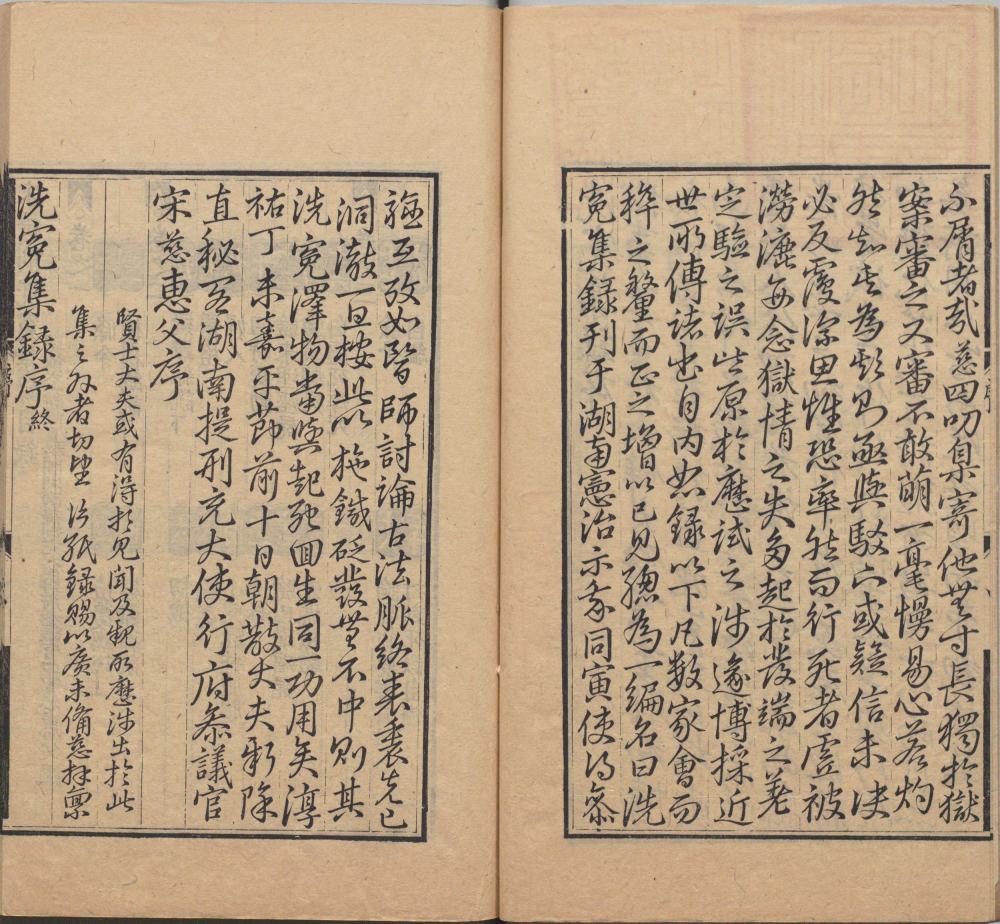 不屑者哉慈四叨臬寄他無寸長獨於獄
案審之又審不敢萌一毫慢易心若灼
然知其為欺則亟與駁下或疑信未決
必反覆深思惟恐率然而行死者虛被
澇漉每念獄情之失多起於發端之差
定驗之誤皆原於歷試之淺遂博採近
世所傳諸書自內恕錄以下凡數家會而
稡之釐而正之增以己見總為一編名曰洗
冤集録刊于湖南憲治示我同寅使得參
驗互攷如醫師討論古法脈絡表裏先已
洞澈一旦按此以施鍼砭發無不中則其
洗冤澤物當與起死回生同一功用矣淳
祐丁未嘉平節前十日朝散大夫新除
直秘閣湖南提刑充大使行府參議官
宋慈惠父序
賢士大夫或有得於見聞及親所歷涉出於此
集之外者切望片紙錄賜以廣未備慈拜稟
洗冤集録序終
序